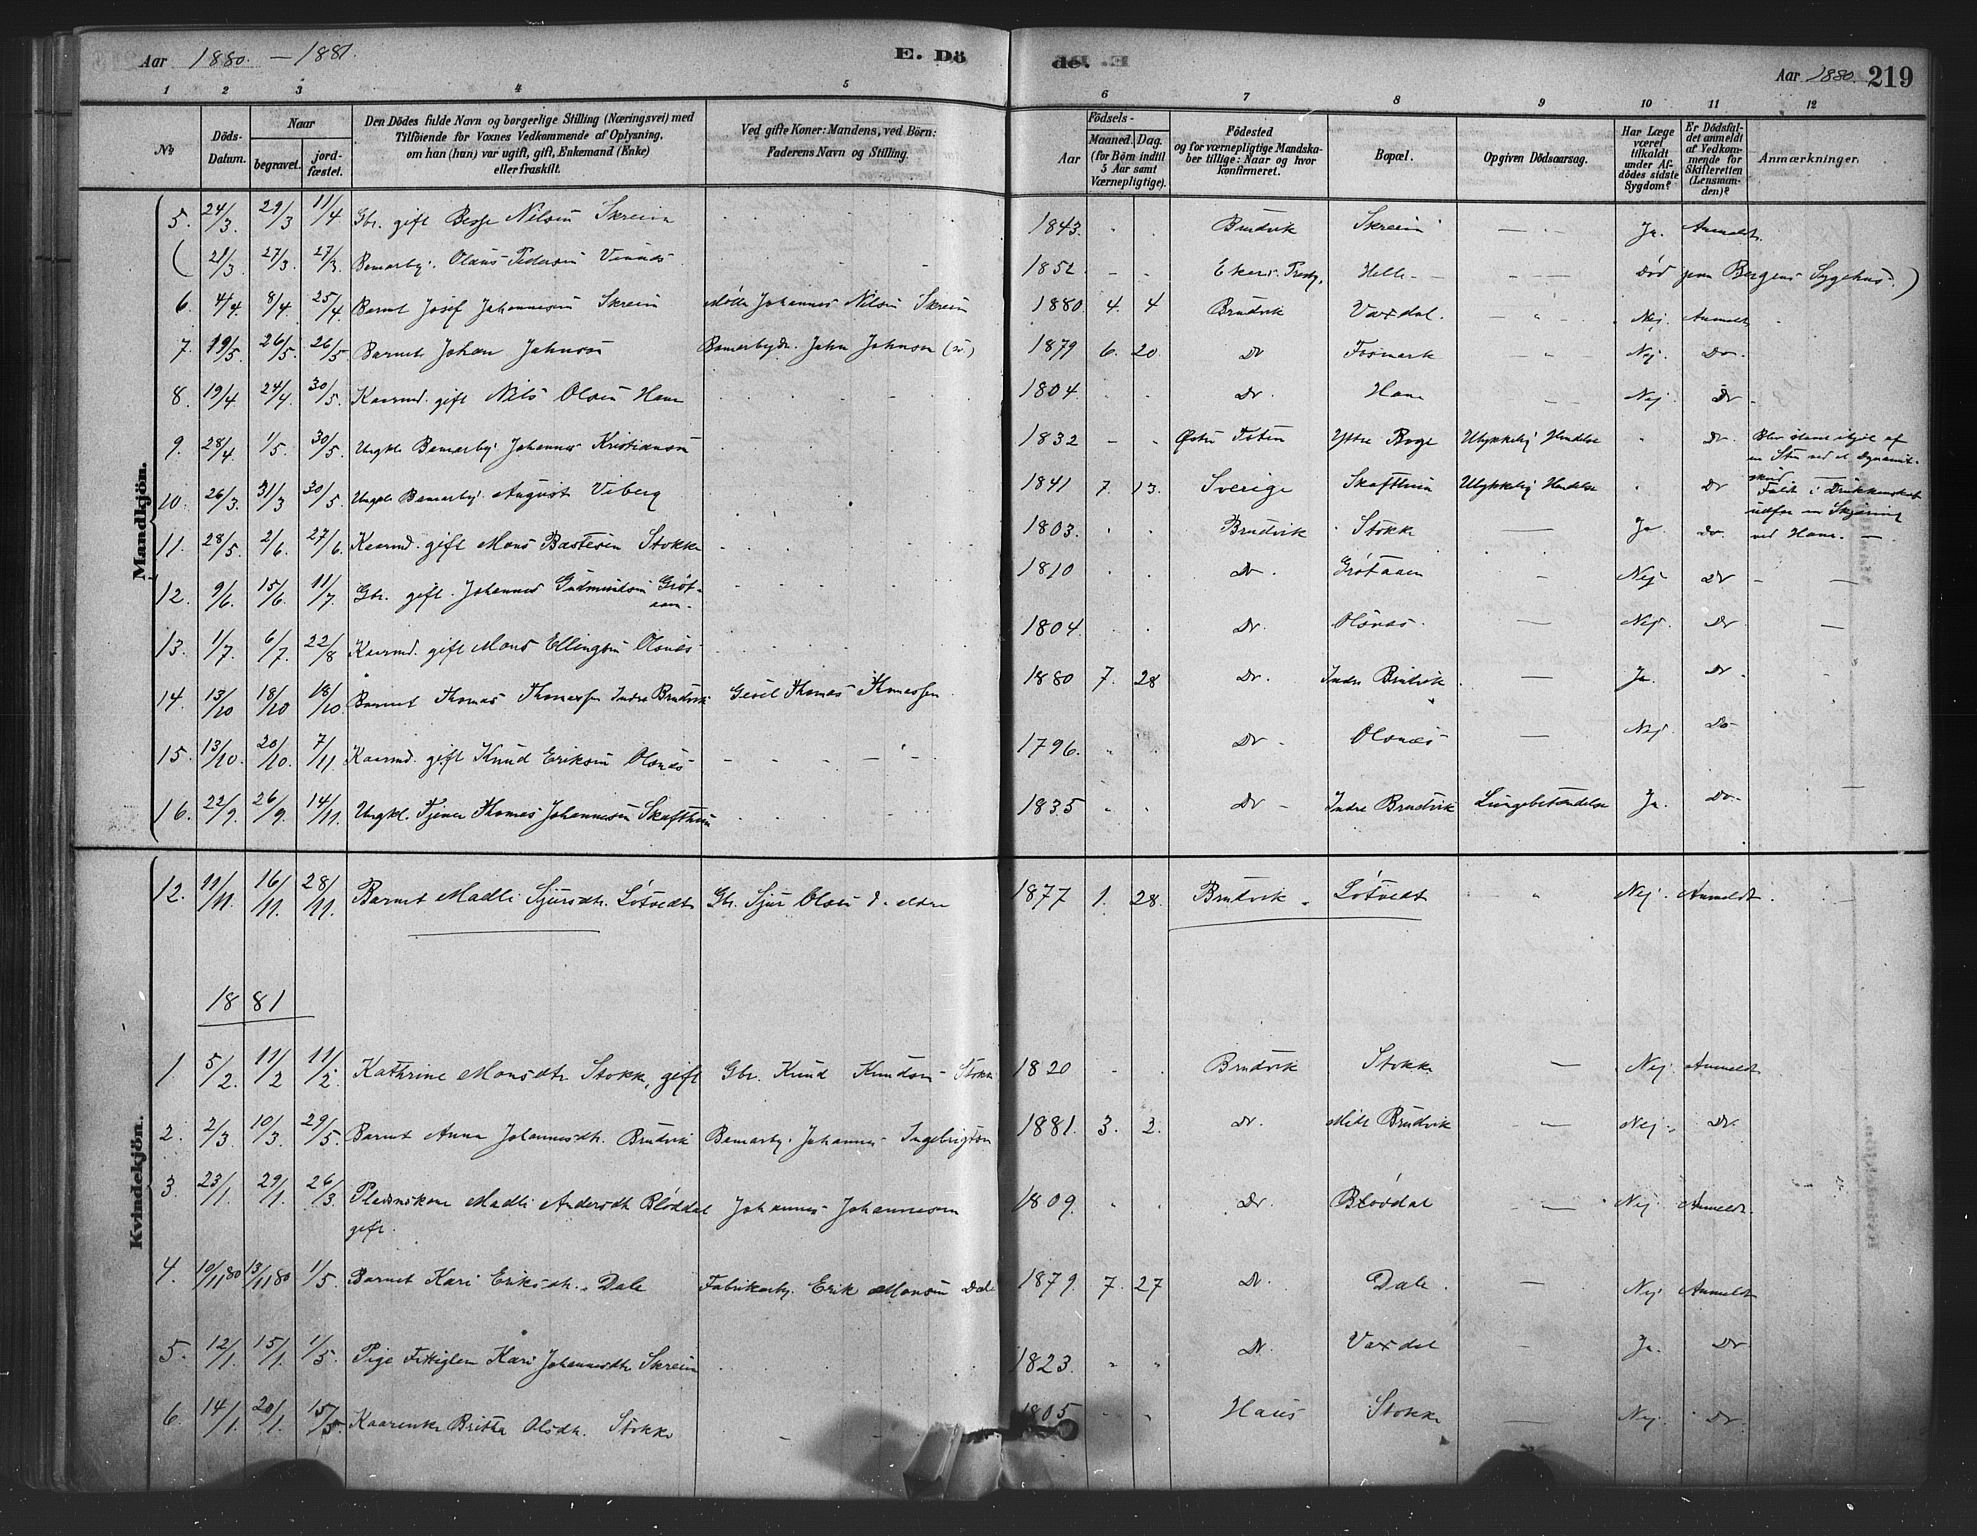 Aar 1880. — 1881. E. Dö de. Aar 1880. 219
1 2 3 4 5 6 7 8 9 10 11 12
No
Döds-Datum.
Naar
begravet. jord-fæstet.
Den Dödes fulde Navn og borgerlige Stilling (Næringsvei) med
Tilföiende for Voxnes Vedkommende af Oplysning,
om han (hun) var ugift, gift, Enkemand (Enke)
eller fraskilt.
Ved gifte Koner: Mandens, ved Börn:
Faderens Navn og Stilling.
Födsels-
Aar
Maaned. Dag.
(for Börn indtil
5 Aar samt
Værnepligtige).
Födested
og for værnepligtige Mandska-
ber tillige: Naar og hvor
konfirmeret.
Bopæl.
Opgiven Dödsaarsag.
Har Læge
været
tilkaldt
under Af-
dödes sidste
Sygdom?
Er Dödsfal-
det anmeldt
af Vedkom-
mende for
Skifteretten
(Lensman-
den)?
Anmærkninger.
Mandkjön.
5. 24/3. 29/3 11/4 Gbr. gift Nilsen Skreien 1843. Brudvik Skreien Ja. Anmeldt
( 21/3. 27/3. 27/3. Banearby. Olaus Pedersen 1852 Helle Død paa Bergens Sygehus.)
6. 4/4. 8/4. 25/4. Barnet Josef Johannesen Skreien Johannes Nilsen Skreien 1880. 4. 4 Brudvik Vaxdal. Nej. Anmeldt
7. 19/5. 26/5. 26/5 Barnet Johan Johnsen John Johnson 1879 6. 20. Do Fosmark Nej. Do.
8. 19/4. 24/4. 30/5. Kaarmd. gift Nils Olsen Hane 1804. Do. Hane Nej. Do.
9. 28/4. 1/5. 30/5. Ungkl. Banearby. Johannes Kristiansen 1832 Østre Toten Ytre Boge Ulykkelig Hændelse Do. Blev slaaet ihjel af
en Sten ved et Dynamit-
skud
10. 26/3. 31/3 30/5. Banearby. August Viberg 1841 7. 13. Sverige Skafthun Ulykkelig Hændelse Do Faldt i Drukkenskab
udfor en Skjæring
ved Hane.
11. 28/5. 2/6. 27/6. Kaarmd. gift Mons Bastesen Stokke 1803. Brudvik Stokke Ja Do.
12. 9/6. 15/6. 11/7. Gbr. gift. Johannes Gudmundsen Grøt-
aaen 1810 Do. Grøtaaen Nej. Do
13. 1/7. 6/7. 22/8 Kaarmd. gift Mons Ellingsen Olsnæs 1804. Do. Olsnæs. Nej. Do.
14. 13/10 18/10 18/10. Barnet Thomas Thomassen Indre Brudvik Thomas Thomassen 1880 7. 28 Do. Indre Brudvik Ja. Do.
15. 13/10. 20/10. 7/11. Kaarmd. gift Knud Eriksen Olsnæs 1796. Do. Olsnæs Nej Do
16. 22/9. 26/9. 14/11. Ungkl. Tjener Thomas Johannesen Skafthun 1835 Do Indre Brudvik Lungebetændelse Ja. Do.
Kvindekjön.
12. 11/11. 16/11. 28/11. Barnet Madli Sjursdtr. Løtvedt Gbr. Sjur Olsen d. eldre 1877 1. 28. Brudvik Løtvedt Nej. Anmeldt.
1881
1 5/2. 11/2 11/2. Kathrine Monsdtr Stokke, gift Gbr. Knud Knudsen Stokke 1820 Brudvik Stokke Nej. Anmeldt
2. 2/3. 10/3. 29/5. Barnet Anna Johannesdtr. Brudvik Banearby. Johannes Ingebrigtsen 1881. 3. 2. Do. Midt Brudvik Nej. Do.
3. 23/1. 29/1. 26/3. Pladsmskone Madli Andersdtr Bløddal
gift. Johannes Johannesen 1809. Do. Bløddal Nej. Anmeldt.
4. 10/11 80 13/11 80 1/5. Barnet Kari Eriksdtr. Dale Fabrikarby. Erik Monsen Dale 1879. 7. 27 Do. Dale. Nej. Anmeldt
5. 12/1. 15/1. 1/5. Pige Kari Johannesdtr Skreien 1823. Do. Vaxdal Ja. Do.
6. 14/1. 20/1. 15/5. Kaarenke Britta Olsdtr. Stokke 1805 Haus Stokke Nej. Do.